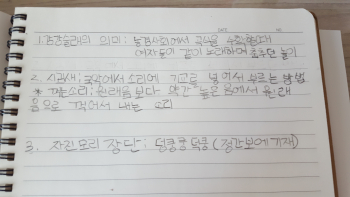 1.강강술래의 의미: 농경사회에서 곡식을 수확할때
여자들이 같이 노래하며 춤추던 놀이
2. 시김새: 국악에서 소리에 기교를 넣어서 부르는 방법
* 꺾는소리: 원래음보다 약간 높은 음에서 원래
음으로 꺾어서 내는 소리
3. 자진모리 장단: 덩쿵쿵덕쿵 (정간보에 기재)